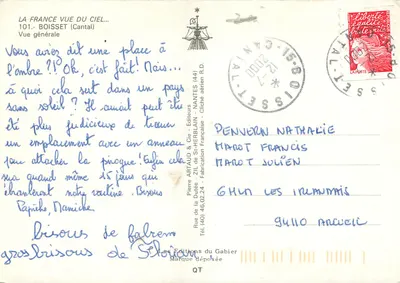 LA FRANCE VUE DU CIEL...
101.- BOISSET (Cantal)
Vue générale
Vous aviez dit une place à
l'ombre ?! Ok, c'est fait! Mais...
à quoi cela sert dans un pays
sans soleil? Il aurait peut être
été plus judicieux de trouver
un emplacement avec un anneau
pour attacher la pirogue! Enfin cela
sera quand même 15 jours qui
chanteront notre routine. Bisous
Papiche, Mamiche.
bisous de fabien
gros bisous de
Pierre ARTAUD & Cie - Éditeurs
Rue de la Dutée - Z.I. de St-HERBLAIN - NANTES (44)
Tél. (40) 46.02.24 - Fabrication Française - Cliché aérien R.D.
Les Éditions du Gabier
Marque déposée
QT
15-BOISSET
CANTAL
2000
PENVERN NATHALIE
MAROT FRANCIS
MAROT JULIEN
6 HLM LES IRLANDAIS
94110 ARCUEIL